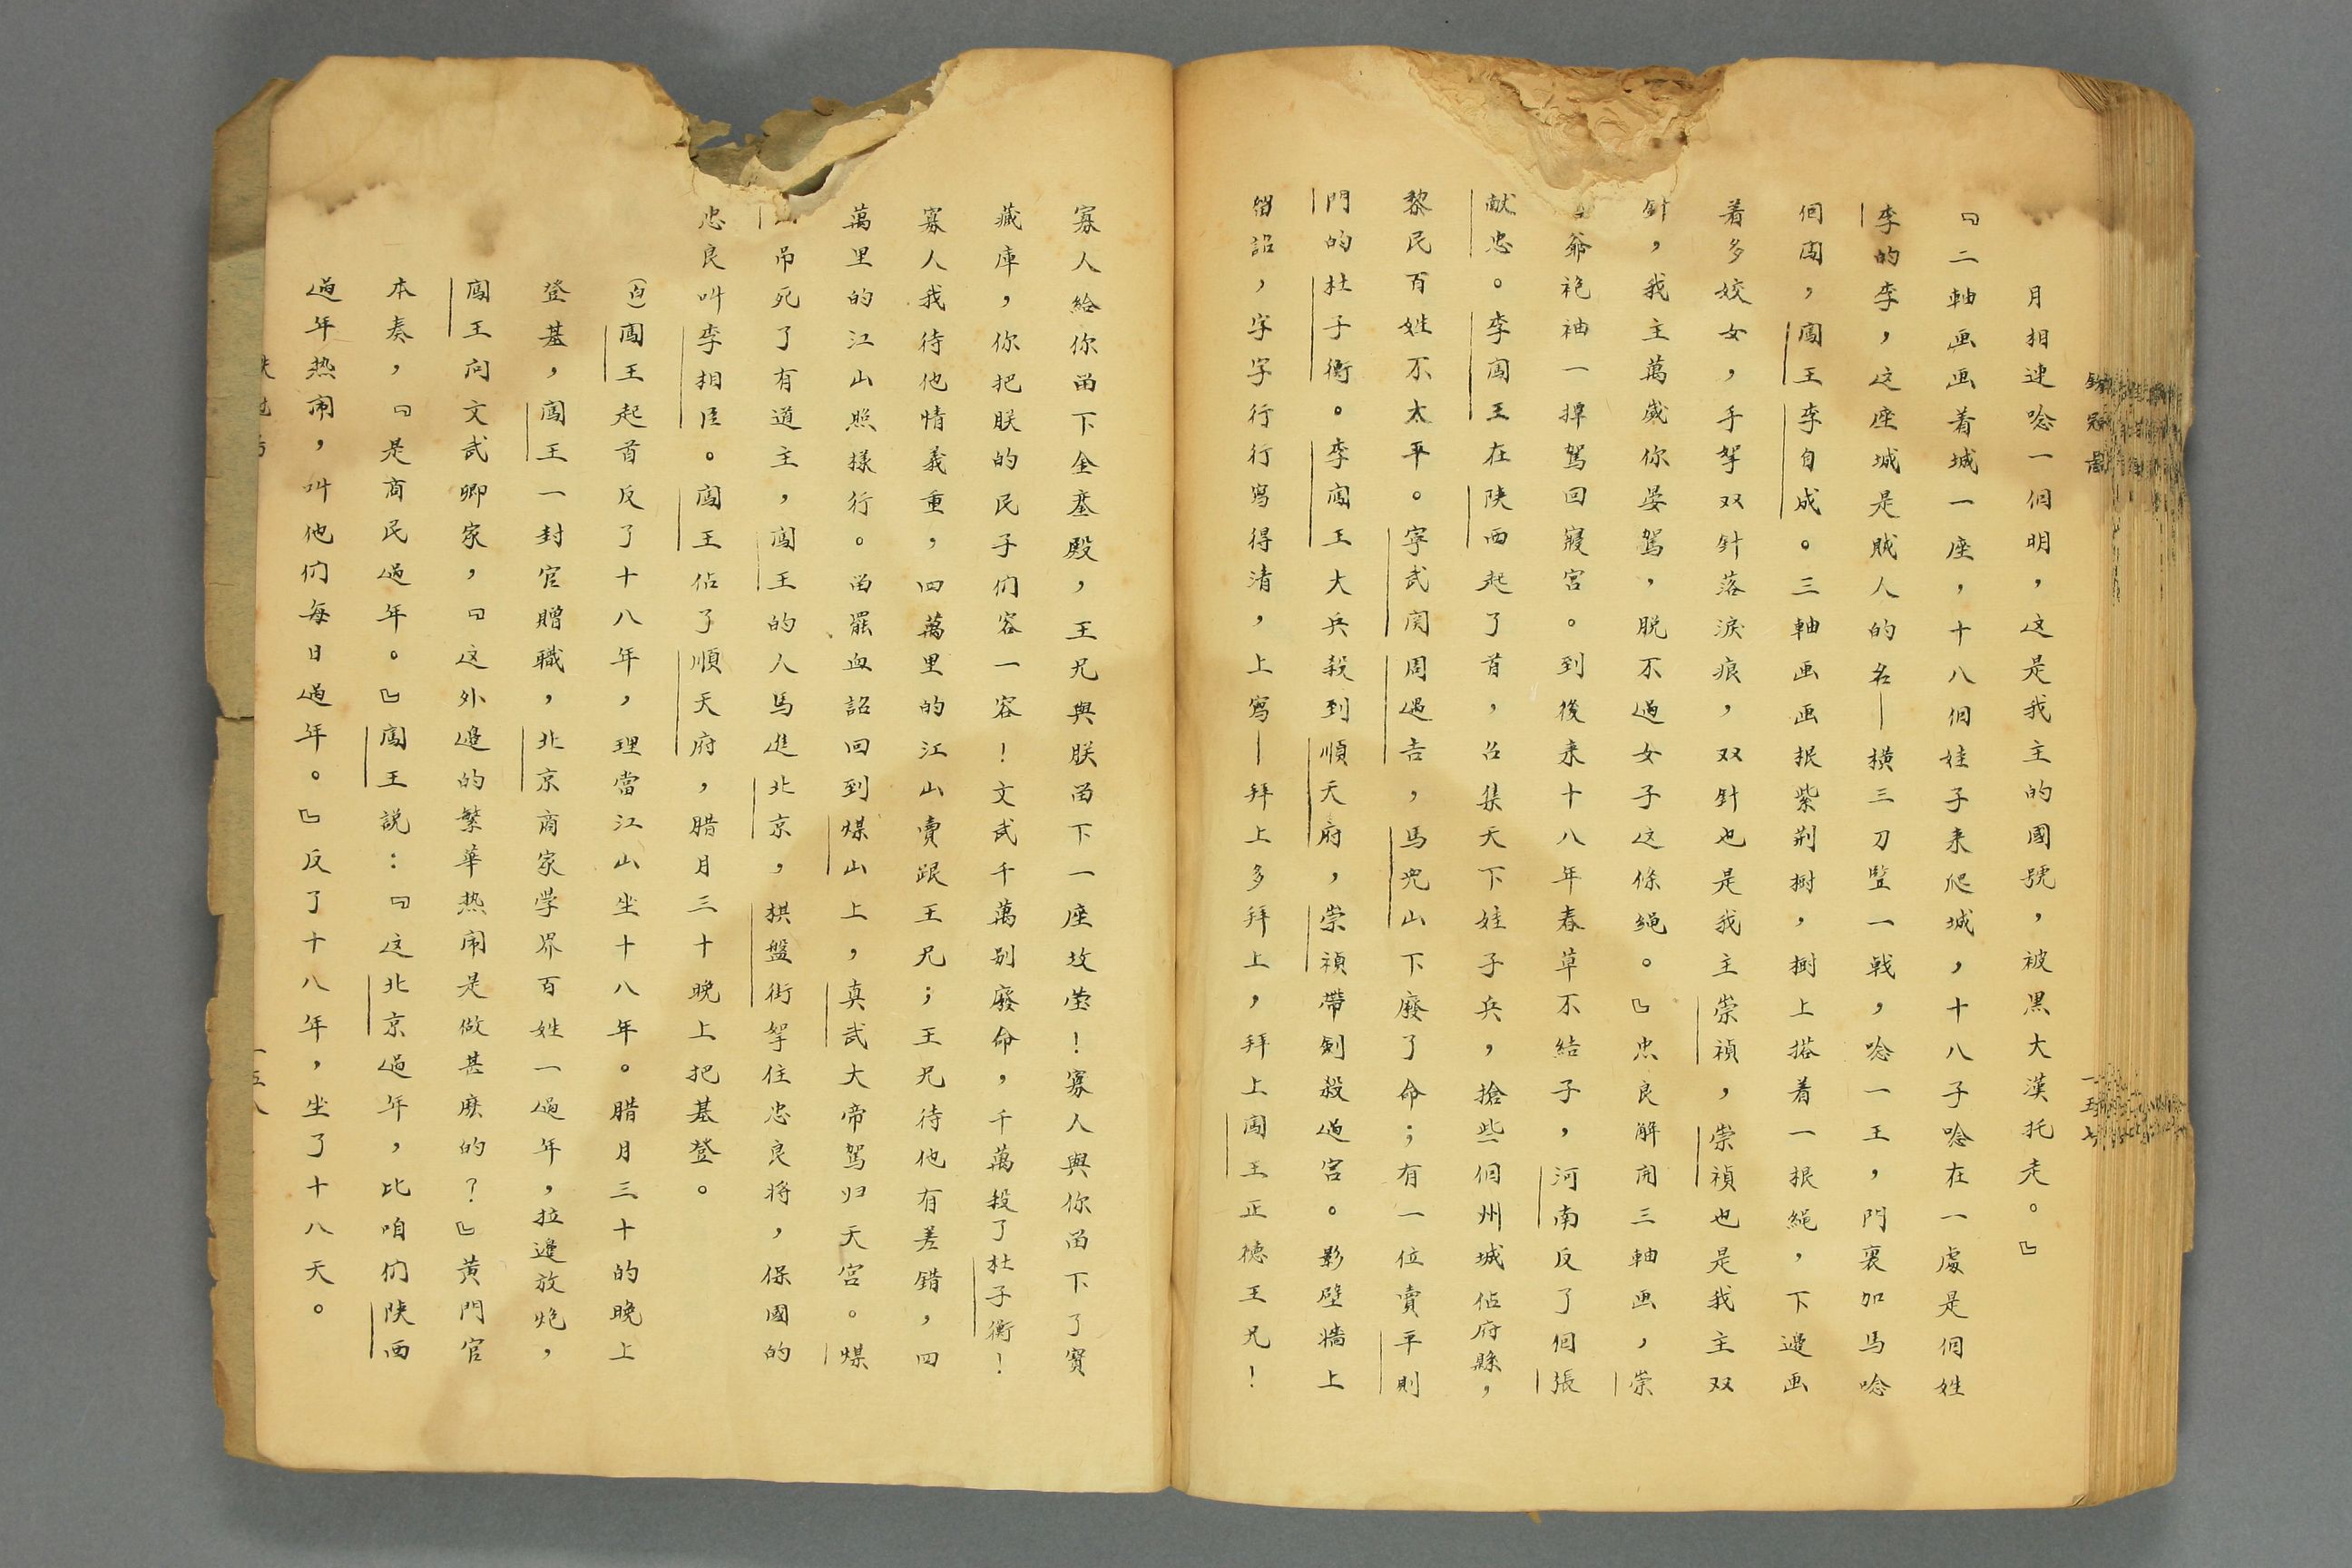 月相連唸一個明，这是我主的國號，被黑大漢托走。』
『二軸画画着城一座，十八個娃子来爬城，十八子唸在一處是個姓
李的李，这座城是賊人的名—橫三刀豎一戟，唸一王，門裏加馬唸
個闖，闖王李自成。三軸画画㧯紫荆樹，樹上搭着一㧯繩，下邊画
着多姣女，手拏双針落淚痕，双針也是我主崇禎，崇禎也是我主双
針，我主萬歲你晏駕，脱不過女子这條绳。』忠良解開三軸画，崇
爺袍袖一撣駕回寢宮。到後来十八年春草不結子，河南反了個張
献忠。李闖王在陕西起了首，召集天下娃子兵，搶些個州城佔府縣，
黎民百姓不太平。寧武関周遇吉，馬兜山下廢了命；有一位賣平則
門的杜子衡。李闖王大兵殺到順天府，崇禎帶劍殺過宮。影壁牆上
留詔，字字行行寫得清，上寫—拜上多拜上，拜上闖王正德王兄！
寡人給你畄下金鑾殿，王兄與朕畄下一座坟塋！寡人與你畄下了寳
藏庫，你把朕的民子们容一容！文武千萬别廢命，千萬殺了杜子衡！
寡人我待他情義重，四萬里的江山賣跟王兄；王兄待他有差錯，四
萬里的江山照樣行。畄罷血詔回到煤山上，真武大帝駕归天宫。煤
吊死了有道主，闖王的人馬進北京，棋盤街拏住忠良将，保國的
忠良叫李相臣。闖王佔了順天府，腊月三十晚上把基登。
(白)闖王起首反了十八年，理當江山坐十八年。腊月三十的晚上
登基，闖王一封官贈職，北京商家学界百姓一過年，拉邊放炮，
闖王问文武卿家，『这外邊的繁華热闹是做甚麽的？』黄門官
本奏，『是商民過年。』闖王説：『这北京過年，比咱们陕西
過年热闹，叫他们每日過年。』反了十八年，坐了十八天。
一五七